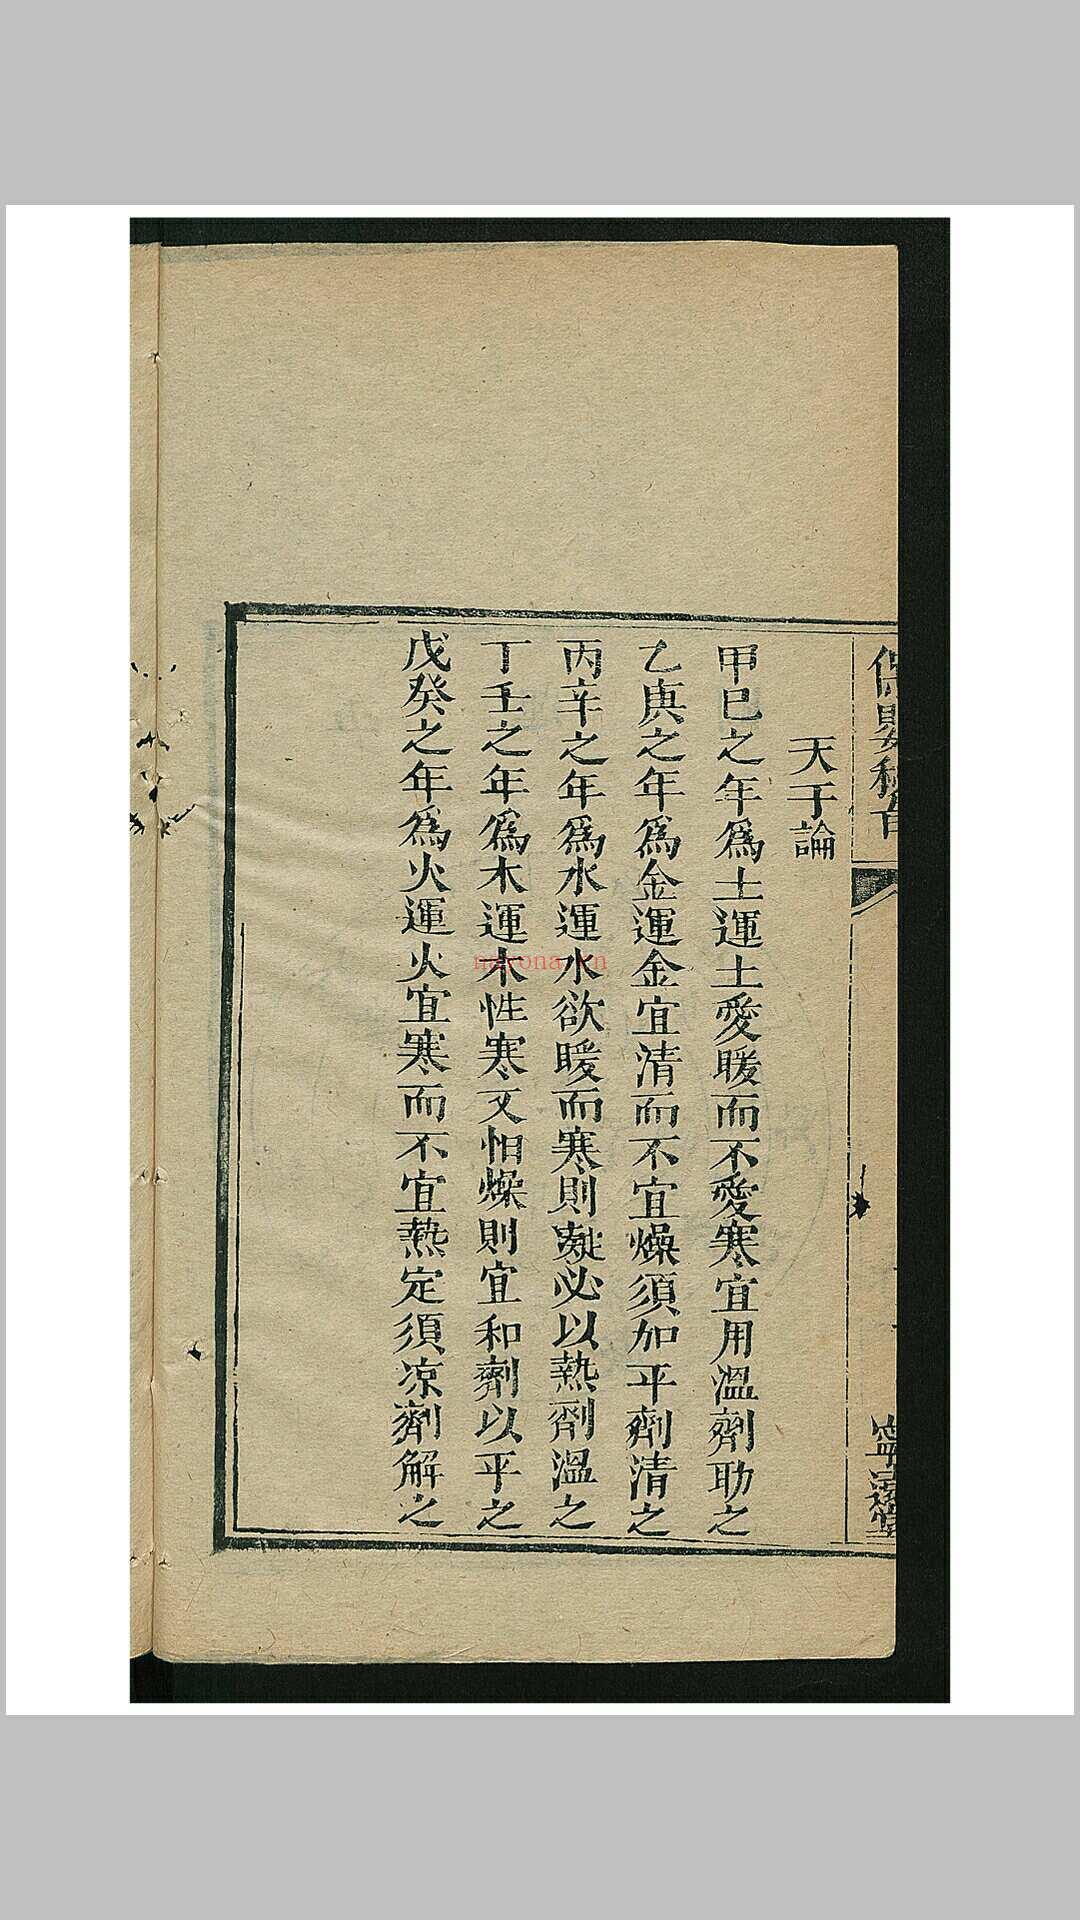 保嬰秘旨
天干論
甲巳之年爲土運土愛暖而不愛寒宜用溫劑助之
乙庚之年爲金運金宜清而不宜燥須加平劑清之
丙辛之年爲水運水欲暖而寒則凝必以熱劑溫之
丁壬之年爲木運木性寒又怕燥則宜和劑以平之
戊癸之年爲火運火宜寒而不宜熱定須凉劑解之